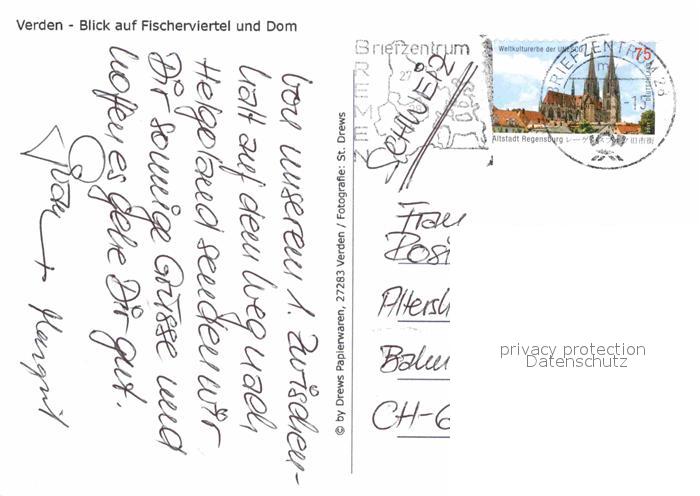 Verden - Blick auf Fischerviertel und Dom
Von unserem 1. Zwischen-
halt auf dem Weg nach
Helgoland senden wir
Dir sonnige Grüsse und
hoffen es gehe Dir gut.
+ Margrit
© by Drews Papierwaren, 27283 Verden / Fotografie: St. Drews
Briefzentrum
BREMEN
27
SCHWEIZ
Weltkulturerbe der UNESCO
75
Altstadt Regensburg レーゲンスブルク旧市街
BRIEFZENTRUM 28
Frau
Rosi
Altersh
Bahn
CH-6
privacy protection
Datenschutz